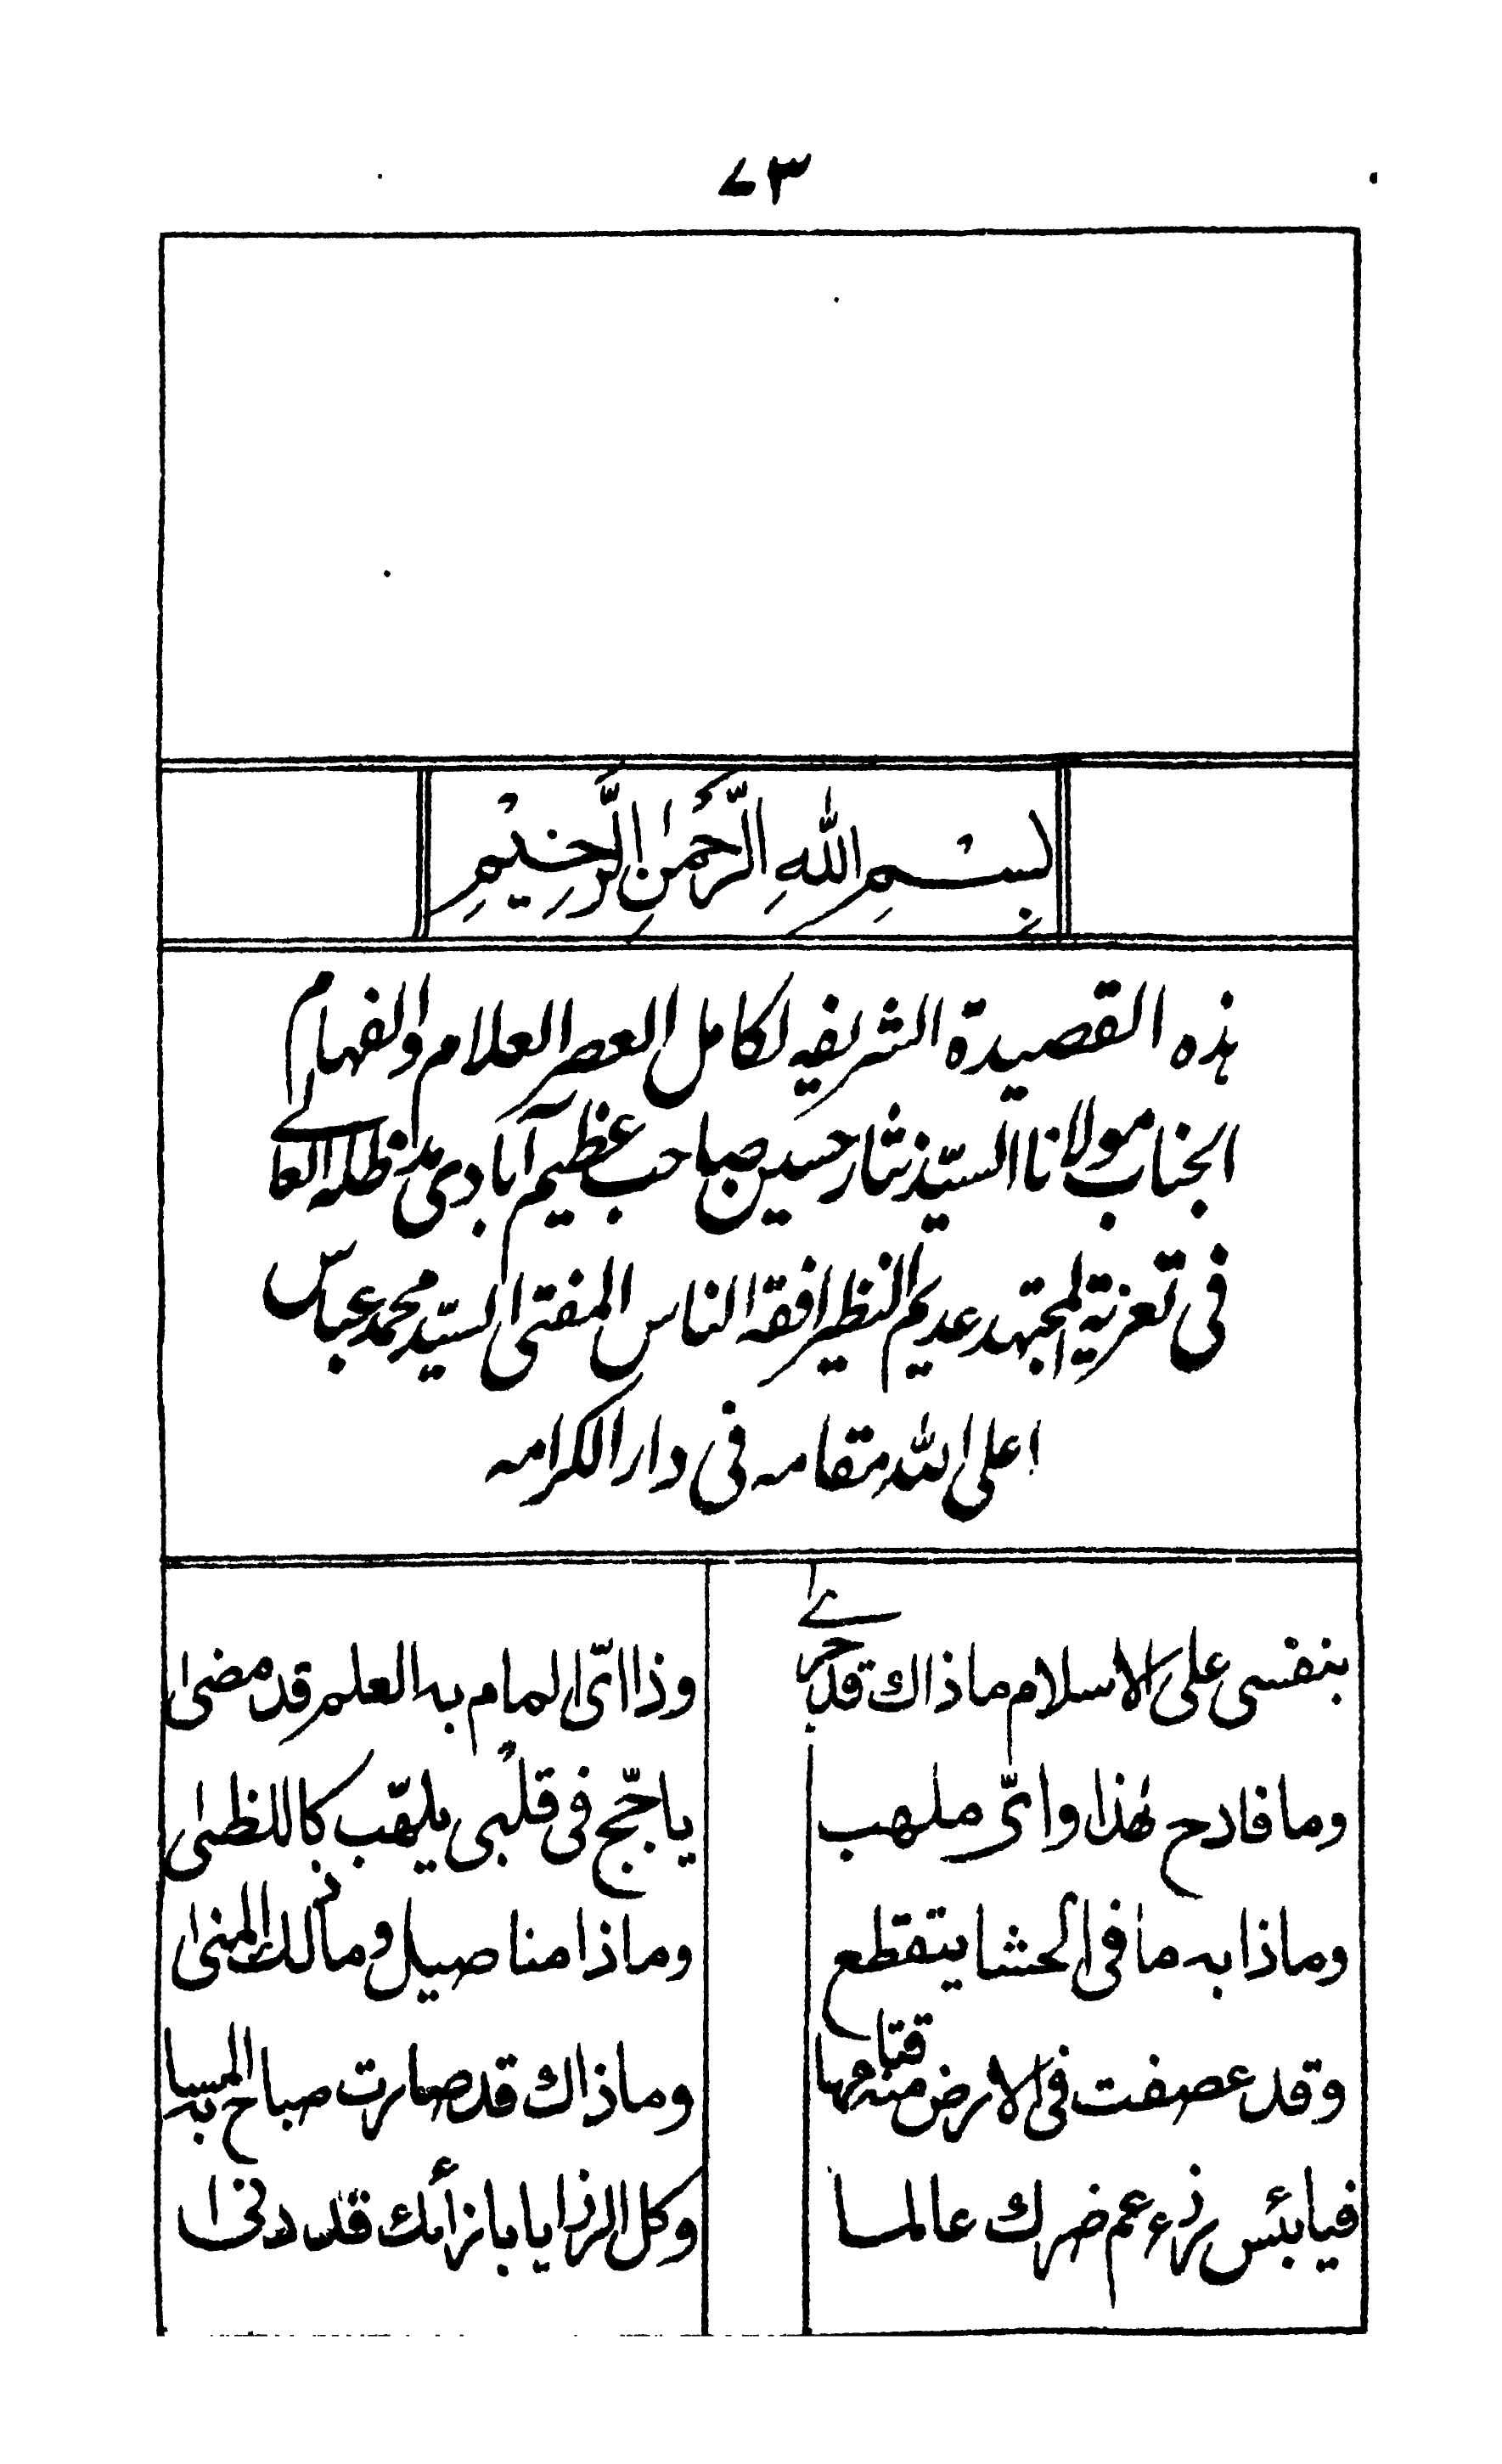 ۷۳
بِسْمِ اللّٰهِ الرَّحْمٰنِ الرَّحِيْمِ
هذه القصيدة الشريفه لكامل العصر العلام والفهام
الجناب مولانا السيّد نثار حسين صاحب عظيم آبادى مدظله العالے
فى تعزية المجتهد عديم النظير افقه الناس المفتى السيّد محمد عباس
اعلى الله مقامه فى دار الكرامه
بنفسى على الاسلام ماذاك قد جرے وذا اىّ المام به العلم قد مضىٰ
وما فادح هٰذا واىّ ملهب ياجّج فى قلبى يلهّب كاللظىٰ
وماذا به ما فى الحشا يتقطع وماذا مناصيل ومالك المنىٰ
وقد عصفت فى الارض منه قتامها وماذاك قد صارت صباح به المسا
فيا بئس رزء عم ضرك عالما وكل الرزايا بازائك قد دنىٰ